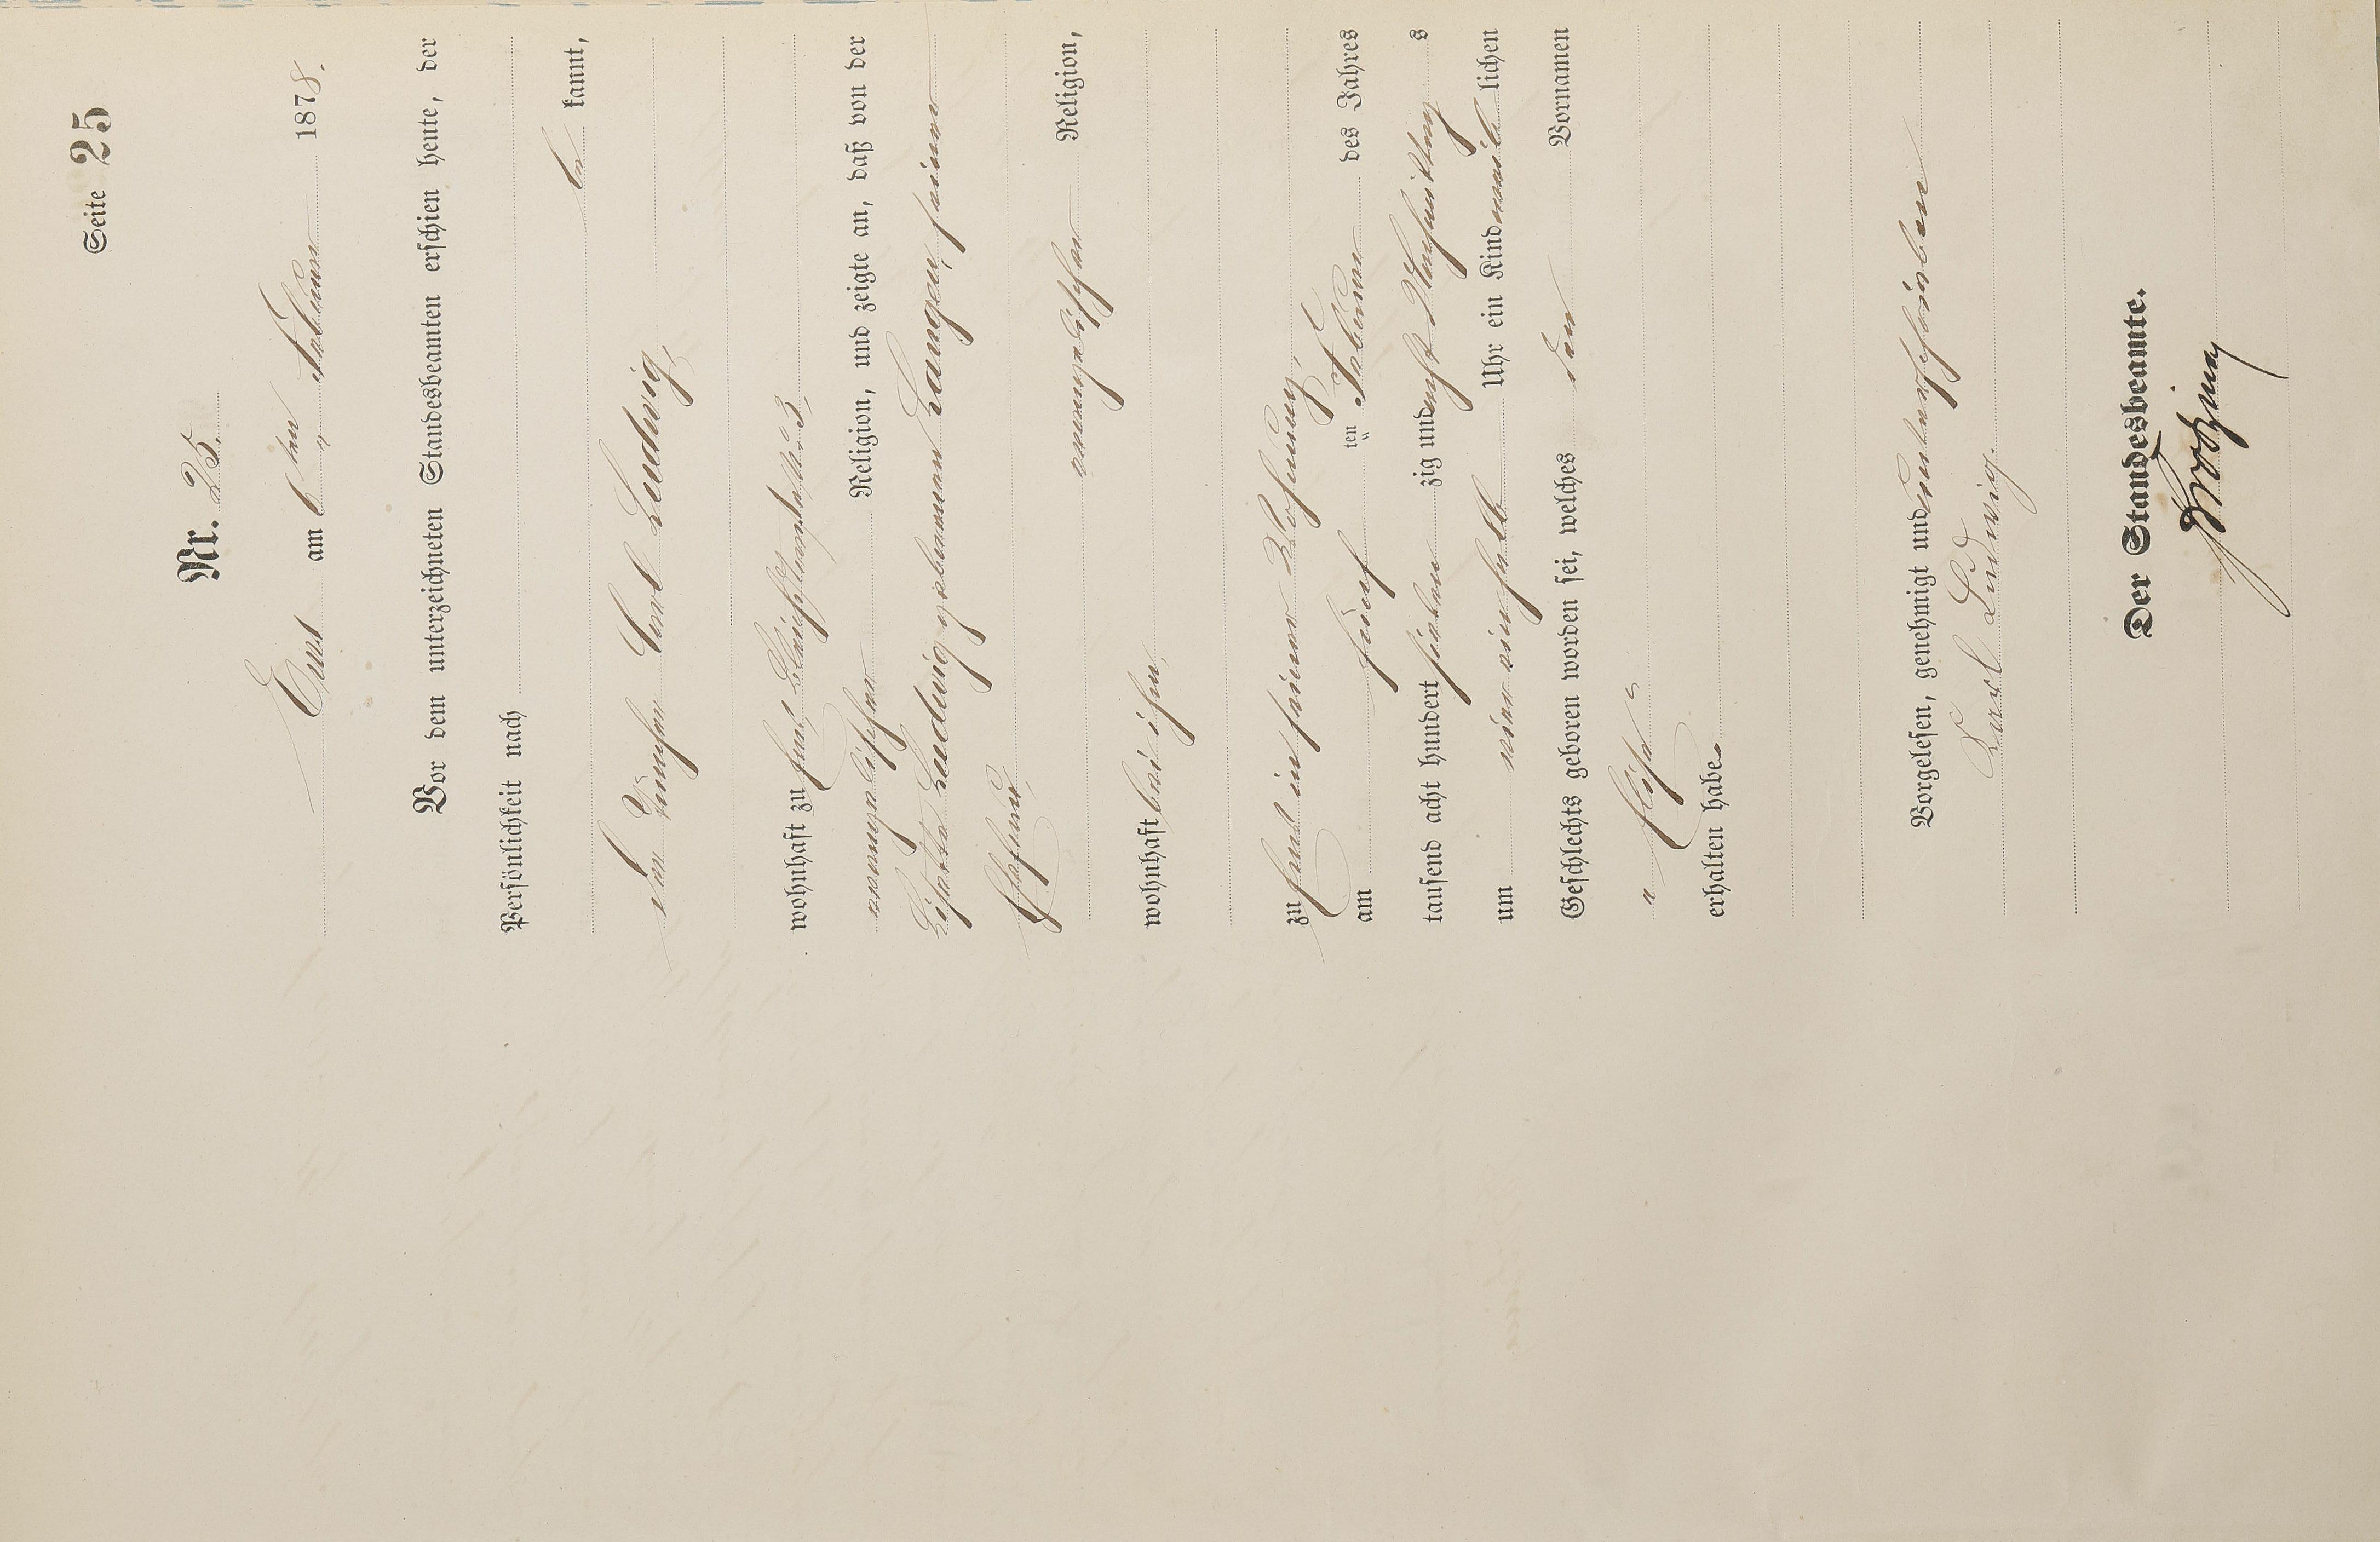 Seite 25
Nr. 25.
Ems am 6ten Februar 1878.
Vor dem unterzeichneten Standesbeamten erschien heute, der
Persönlichkeit nach
be kannt,
der Tüncher Carl Ludwig,
wohnhaft zu Ems, 3,
evangelischer Religion, und zeigte an, daß von der
Ludwig geborenen Langen, seiner
Ehefrau,
evangelischer Religion,
wohnhaft bei ihm,
zu Ems in seiner Wohnung,
am fünf ten Februar des Jahres
tausend acht hundert sieben zig und acht Nachmittag s
um vier ein halb Uhr ein Kind lichen
Geschlechts geboren worden sei, welches den Vornamen
erhalten habe.
Vorgelesen, genehmigt und unterschrieben
Karl Ludwig.
Der Standesbeamte.